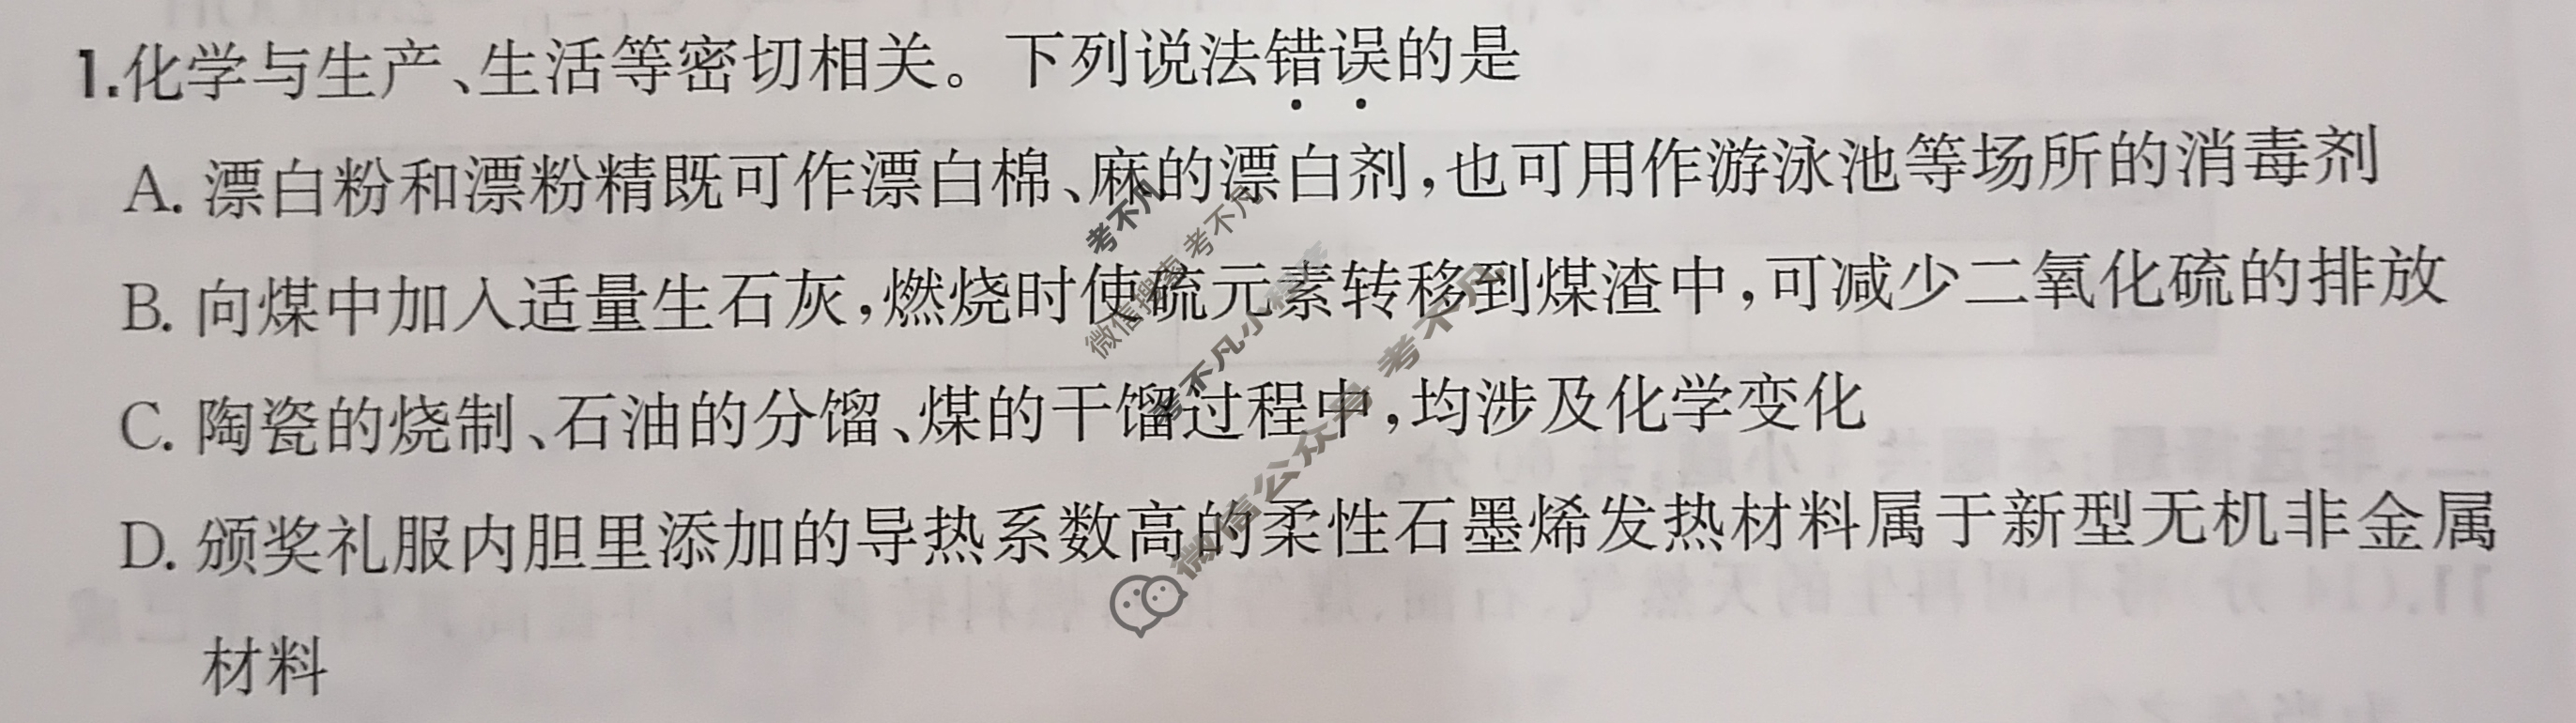 1.化学与生产、生活等密切相关。下列说法错误的是
A. 漂白粉和漂粉精既可作漂白棉、麻的漂白剂,也可用作游泳池等场所的消毒剂
B. 向煤中加入适量生石灰,燃烧时使硫元素转移到煤渣中,可减少二氧化硫的排放
C. 陶瓷的烧制、石油的分馏、煤的干馏过程中,均涉及化学变化
D. 颁奖礼服内胆里添加的导热系数高的柔性石墨烯发热材料属于新型无机非金属
材料
考不凡
微信搜索 考不凡
考不凡小程序
微信公众号 考不凡
二、非选择题:本题共4小题,共60分。